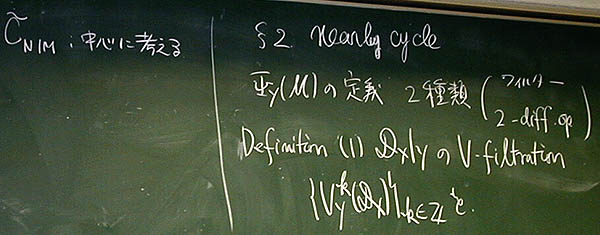 C̃_{N|M} : 中心に考える
§2. Nearby cycle
Ψ_Y(M) の定義 2種類 (フィルター
2-diff. op)
Definition (1) D_X|_Y の V-filtration
{V_Y^k(D_X)}_{k∈Z} を.